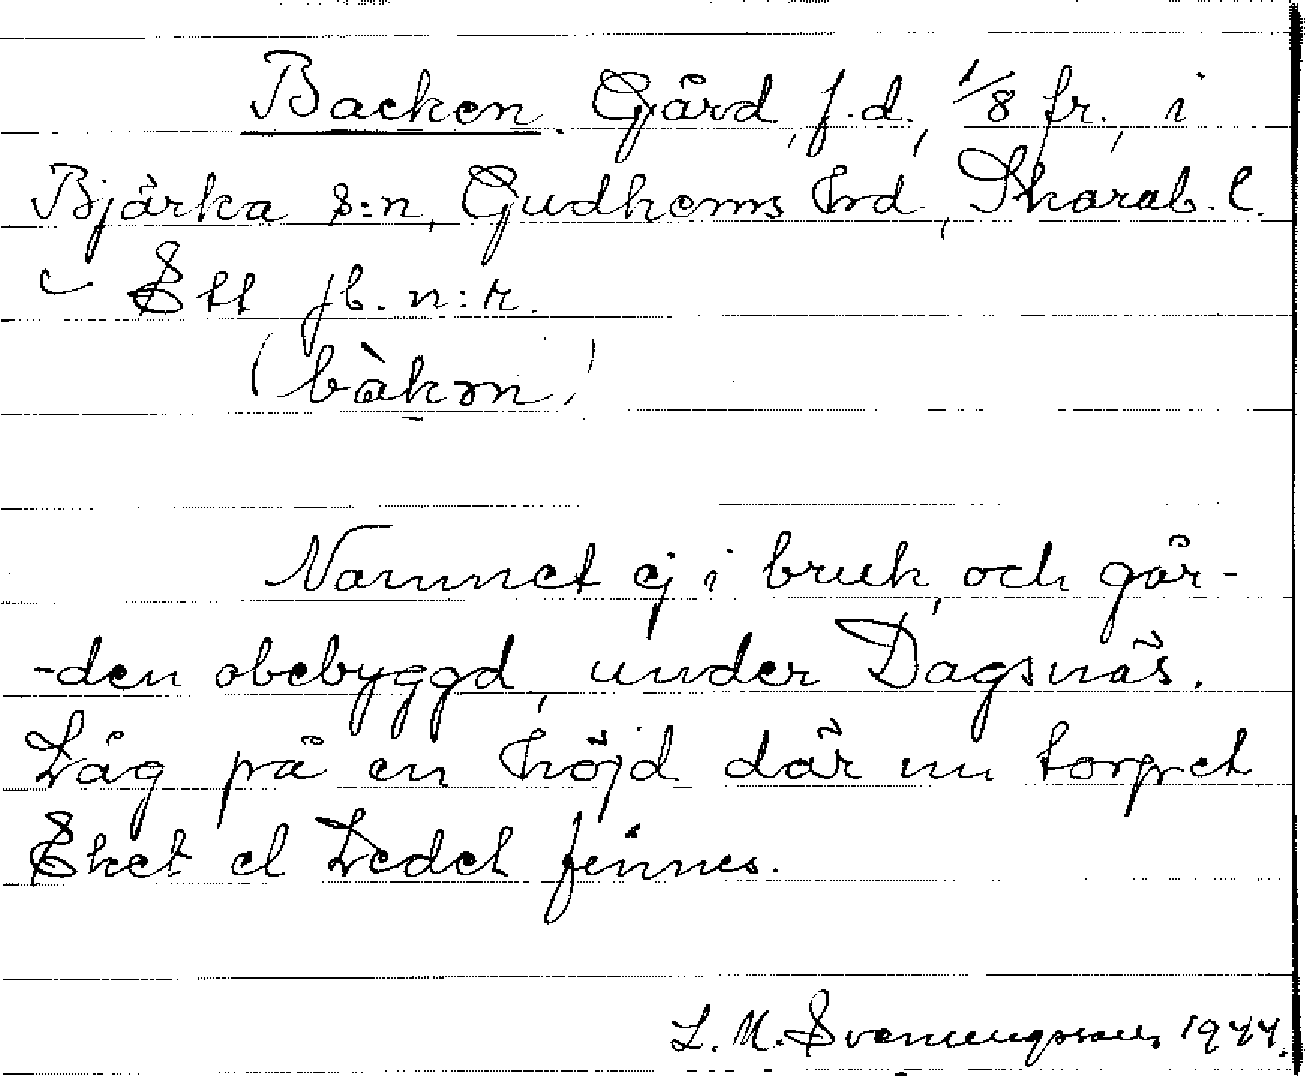 Backen. Gård, f.d., 1/8 fr., i
Bjärka s:n, Gudhems hrd, Skarab. l.
Ett jb. n:r.
(bàkən)
Namnet ej i bruk, och går-
-den obebyggd, under Dagsnäs.
Låg på en höjd där nu torpet
Eket el Ledet finnes.
L. M. Svenungsson 1944.